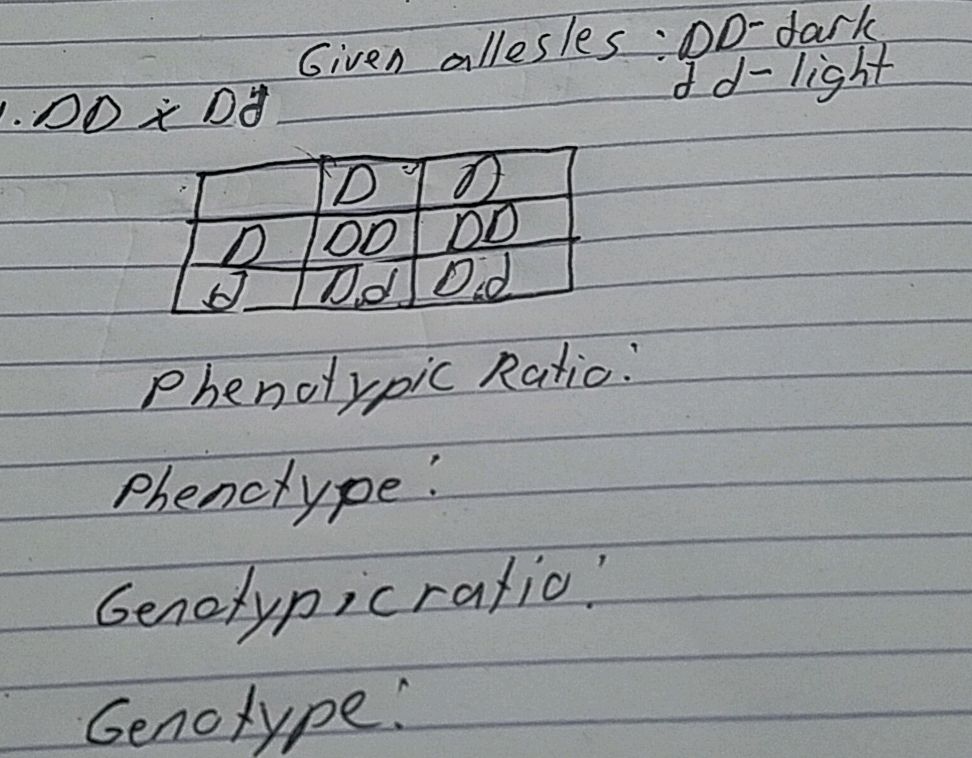 Given allesles : DD- dark
d d - light
1. DD x Dd
D D
D DD DD
d Dd Dd
Phenotypic Ratio:
Phenotype:
Genotypic ratio:
Genotype: